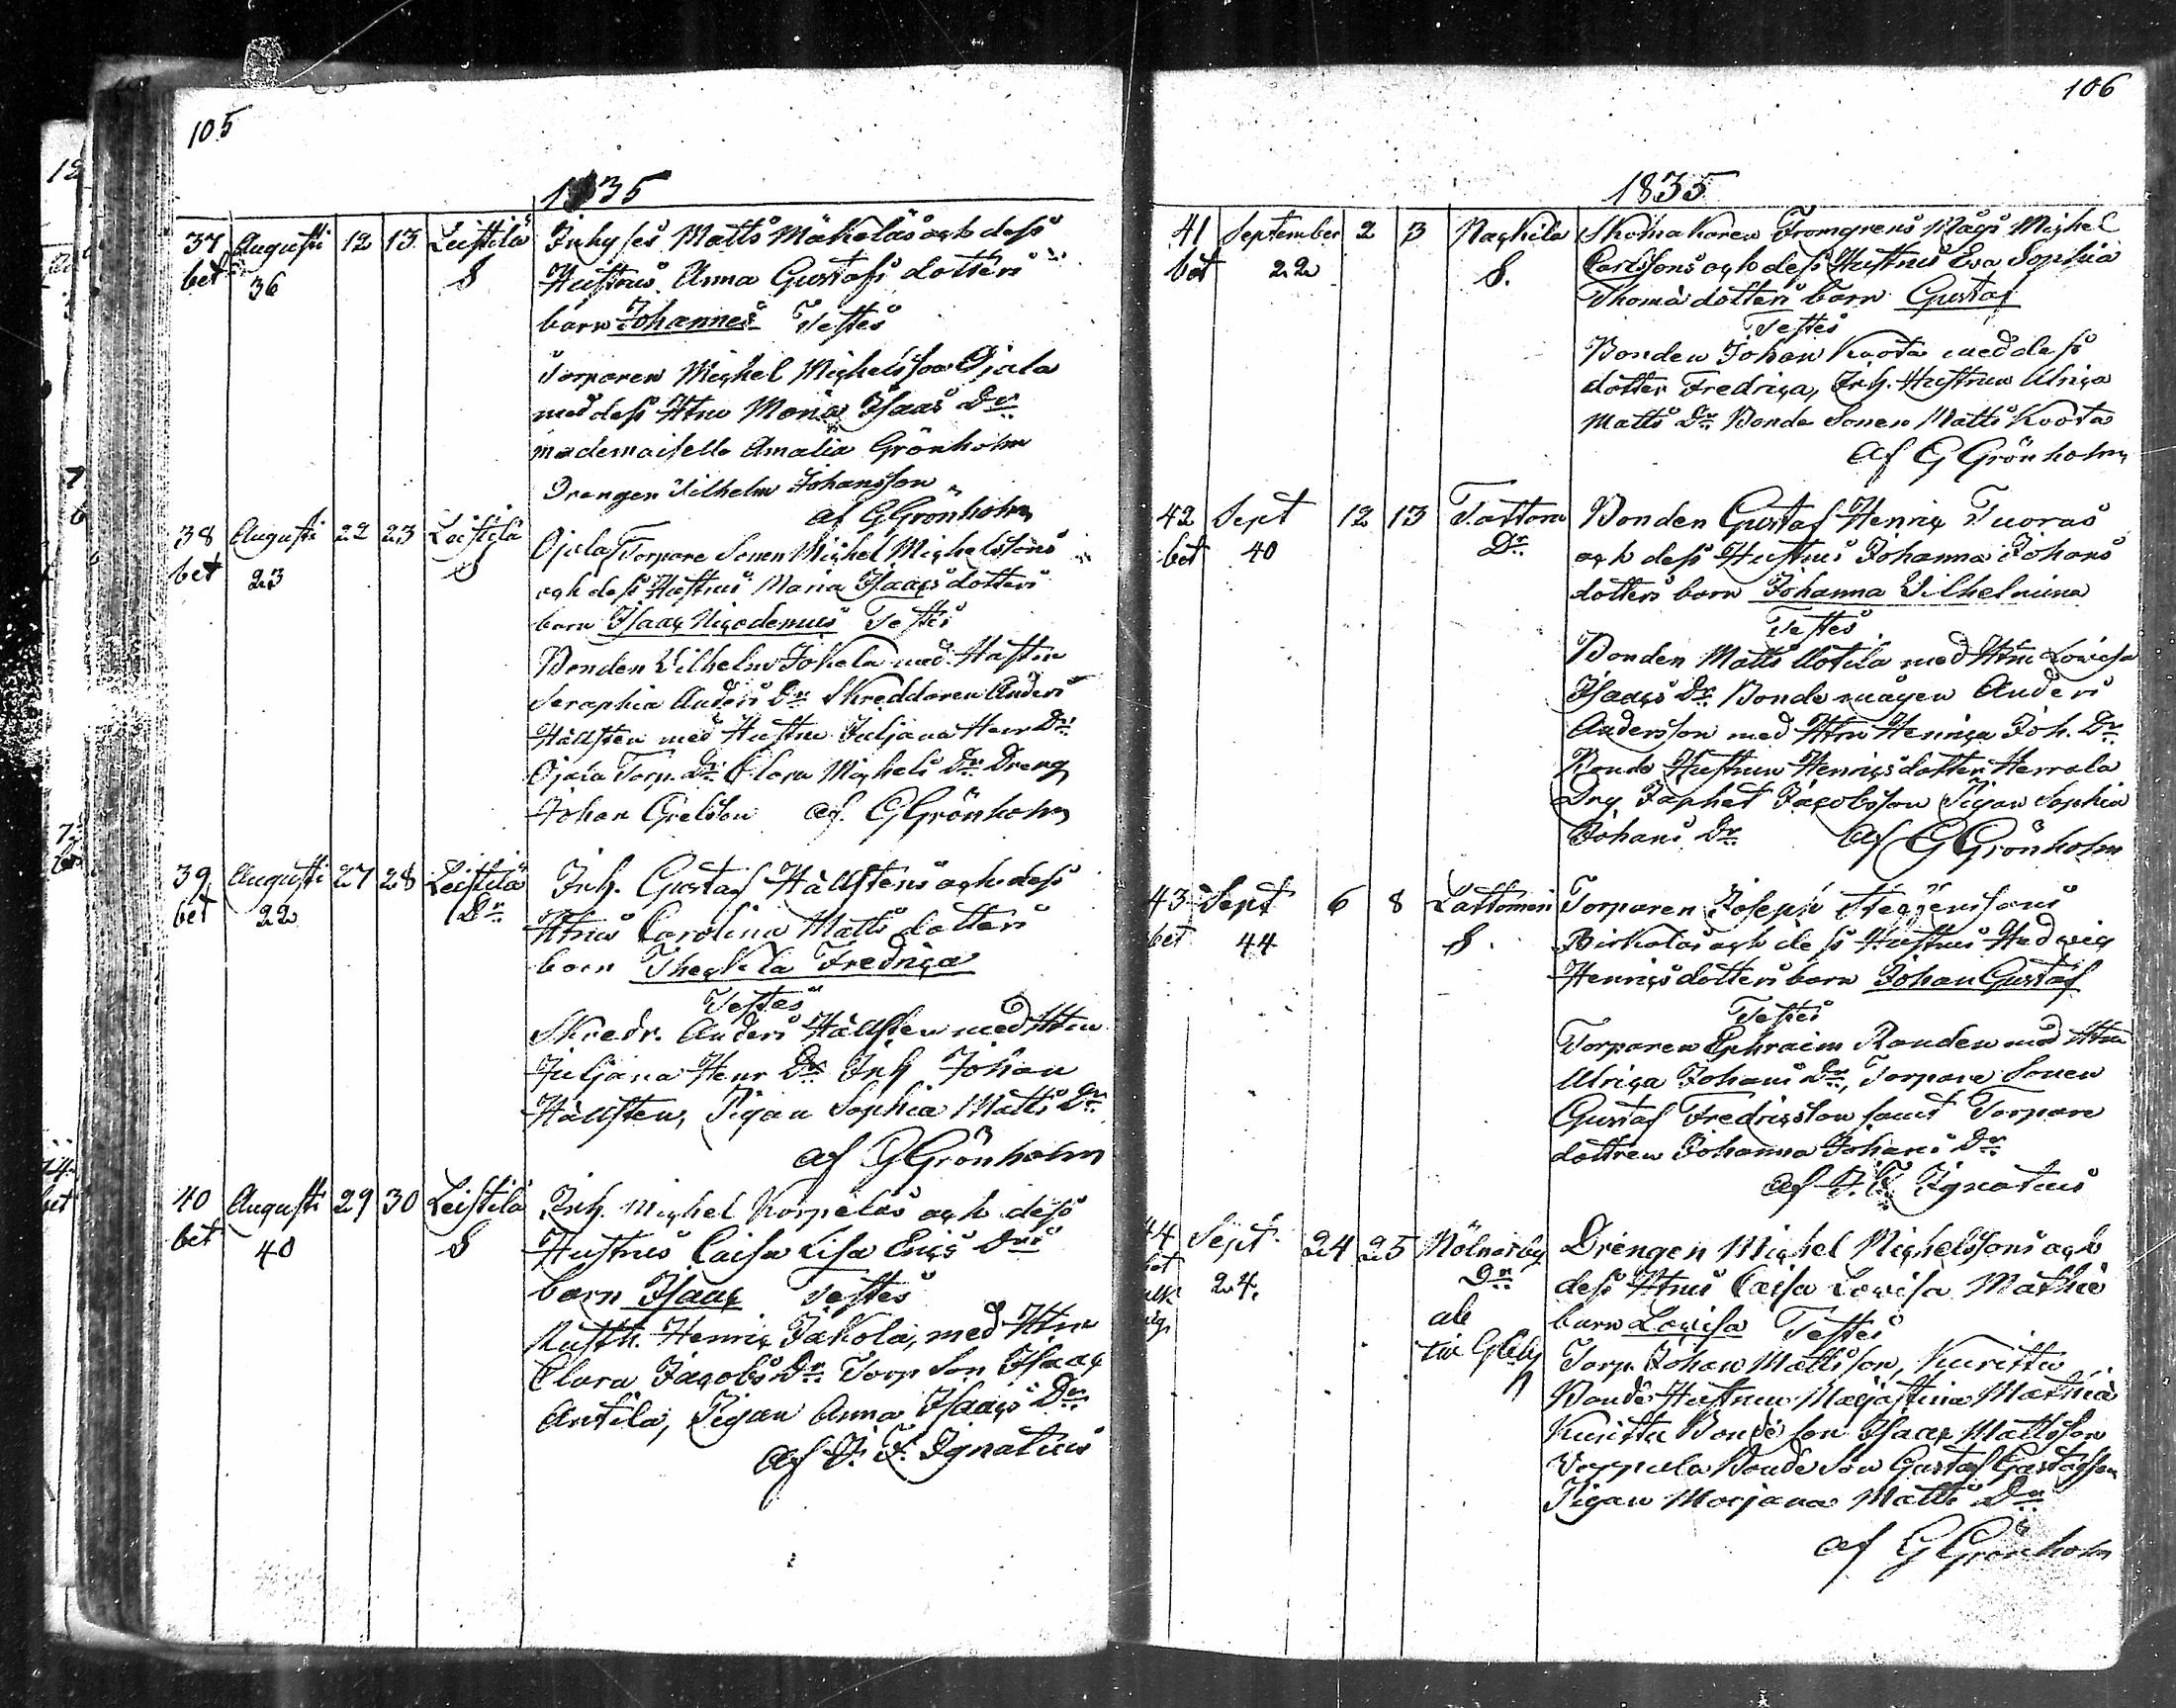 105
1835
37 Augusti 12 13 Leistilä Inhyses Matts Mäkeläs och dess
bet 36 S Hustrus Anna Gustafs dotters
barn Johannes Testes
Torparen Michel Michelsson Ojala
med dess Htru Maria Isaacs Dr
mademoiselle Amalia Grönholm
Drengen Vilhelm Johansson
af G Grönholm
38 Augusti 22 23 Leistilä Ojalas Torpare Sonen Michel Michelssons
bet 23 S och dess Hustrus Maria Isaacs dotters
barn Isaac Nicodemus Testes
Bonden Vilhelm Jokela med Hustru
Seraphia Anders Dr Skreddaren Anders
Hällsten med Hustru Juljana Henr Dr
Ojala Torp. Dr Clara Michels Dr Dreng
Johan Grelsson af G Grönholm
39 Augusti 27 28 Leistilä Inh. Gustaf Hällstens och dess
bet 22 Dr Htrus Carolina Matts dotters
barn Theckla Fredrica
Testes
Skredr. Anders Hällsten med Htru
Juljana Henr Dr Inh Johan
Hällsten, Pigan Sophia Matts Dr
af G Grönholm
40 Augusti 29 30 Leistilä Inh. Michel Korpelas och dess
bet 40 S Hustrus Caisa Lisa Erics Drs
barn Isaac Testes
Rusth. Henric Jakola, med Htru
Clara Jacobs Dr Torp Son Isaac
Antila, Pigan Anna Isaacs Dr
af J. F. Ignatius
106
1835
41 September 2 3 Nackila Skomakaren Fromgrens Mågs Michel
bet 22 S. Carlssons och dess Hustrus Eva Sophia
Thomä dotters barn Gustaf
Testes
Bonden Johan Koota med dess
dotter Fredrica, Inh. Hustrun Ulrica
Matts Dr Bonde Sonen Matts Koota
af G Grönholm
42 Sept 12 13 Tattara Bonden Gustaf Henric Tuoras
bet 40 Dr och dess Hustrus Johanna Johans
dotters barn Johanna Vilhelmina
Testes
Bonden Matts Uotila med Htru Lovisa
Isaacs Dr Bonde mågen Anders
Andersson med Htru Henrica Joh. Dr
Bonde Hustrun Henricsdotter Herrala
Drg Japhet Jacobsson Pigan Sophia
Johans Dr af G Grönholm
43 Sept 6 8 Lattomeri Torparen Joseph Steffenssons
bet 44 S. Birkalas och dess Hustrus Hedvig
Henricsdotters barn Johan Gustaf
Testes
Torparen Ephraim Randen med Htru
Ulrica Johans Dr, Torpare Sonen
Gustaf Fredricsson samt Torpare
dottren Johanna Johans Dr
af J. F. Ignatius
44 Sept. 24 25 Mölnarby Drengen Michel Michelssons och
bet 24. Dr dess Htrus Caisa Lovisa Mathiæ
barn Lovisa Testes
Torp. Johan Mattsson, Kuritta
Bonde Hustrun Majastina Mathiæ
Kuritta Bonde son Isaac Mattsson
Bonde Son Gustaf Gustafsson
Pigan Marjana Matts Dr
af G Grönholm